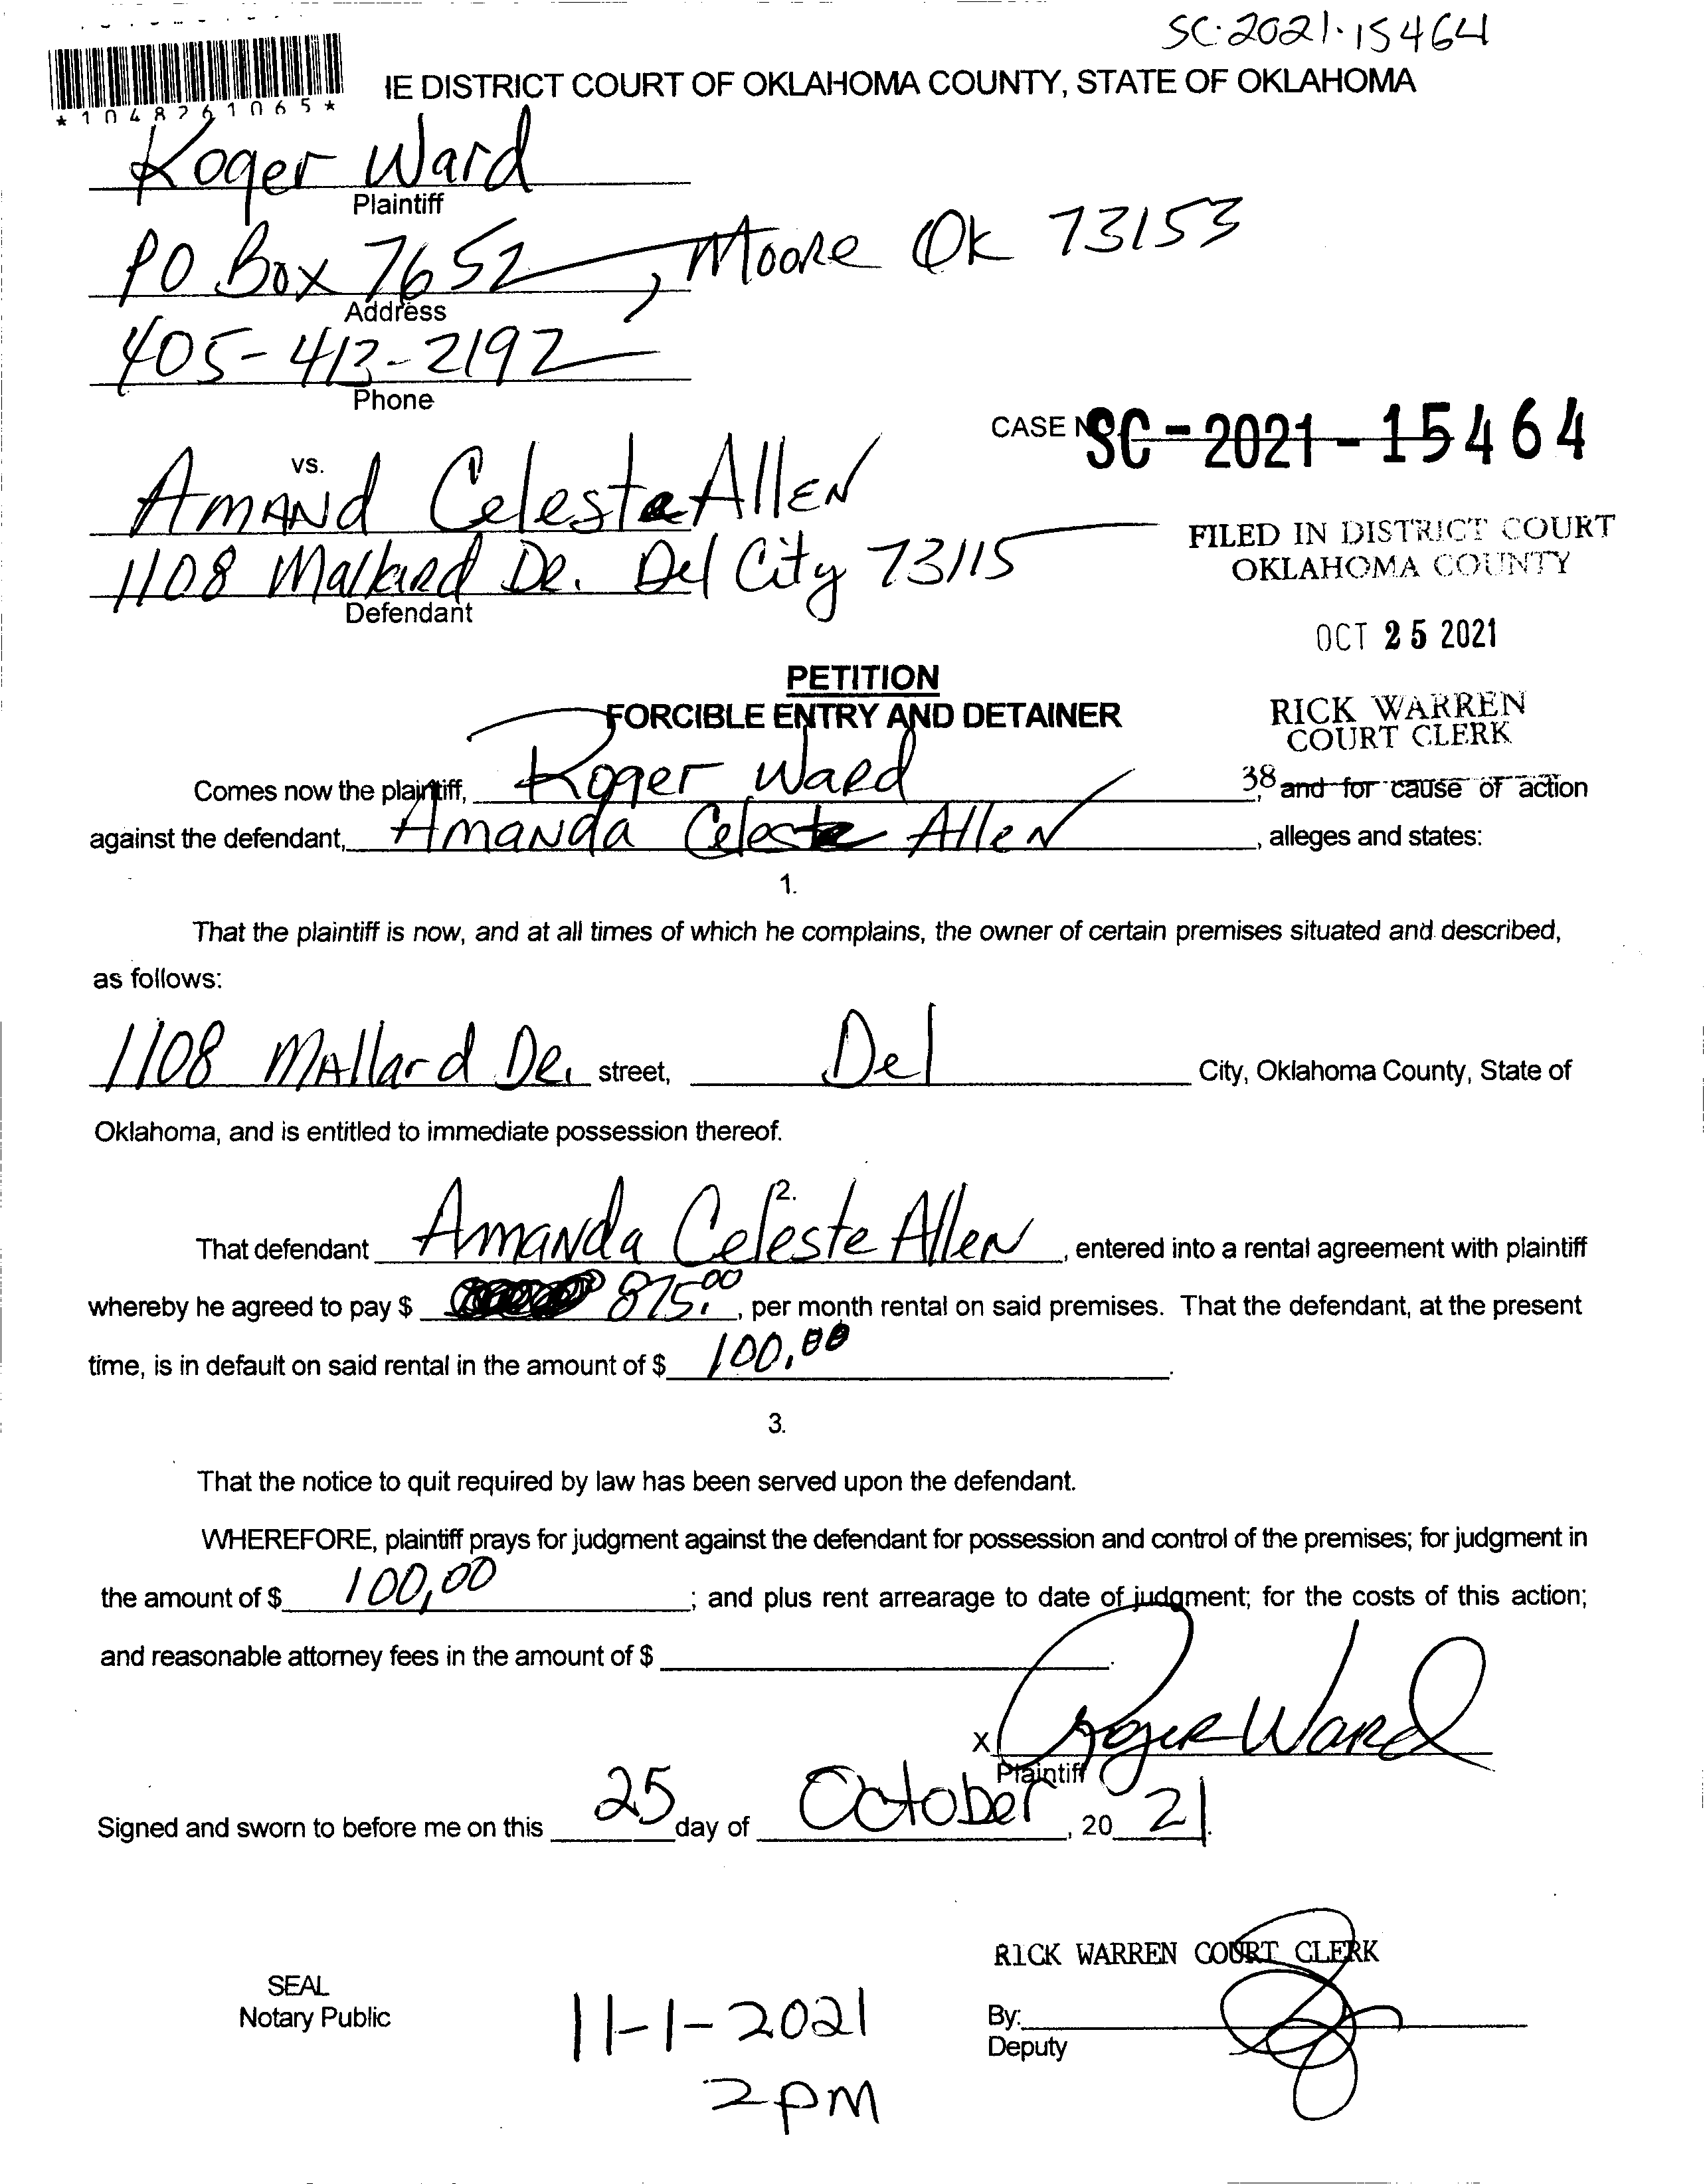 SC-2021-15464
*1048261065*
IE DISTRICT COURT OF OKLAHOMA COUNTY, STATE OF OKLAHOMA
Roger Ward
Plaintiff
PO Box 7652, Moore Ok 73153
Address
405-413-2192
Phone
CASE NO. SC-2021-15464
vs.
Amand Celeste Allen
1108 Mallard DR. Del City 73115
Defendant
FILED IN DISTRICT COURT
OKLAHOMA COUNTY
OCT 25 2021
PETITION
FORCIBLE ENTRY AND DETAINER
RICK WARREN
COURT CLERK
38
Comes now the plaintiff, Roger Ward, and for cause of action
against the defendant, Amanda Celeste Allen, alleges and states:
1.
That the plaintiff is now, and at all times of which he complains, the owner of certain premises situated and described,
as follows:
1108 Mallard DR. street, Del City, Oklahoma County, State of
Oklahoma, and is entitled to immediate possession thereof.
2.
That defendant Amanda Celeste Allen, entered into a rental agreement with plaintiff
whereby he agreed to pay $ 875.00, per month rental on said premises. That the defendant, at the present
time, is in default on said rental in the amount of $ 100.00.
3.
That the notice to quit required by law has been served upon the defendant.
WHEREFORE, plaintiff prays for judgment against the defendant for possession and control of the premises; for judgment in
the amount of $ 100,00; and plus rent arrearage to date of judgment; for the costs of this action;
and reasonable attorney fees in the amount of $ .
X Roger Ward
Plaintiff
Signed and sworn to before me on this 25 day of October, 2021.
RICK WARREN COURT CLERK
SEAL
Notary Public
11-1-2021
2pm
By:
Deputy